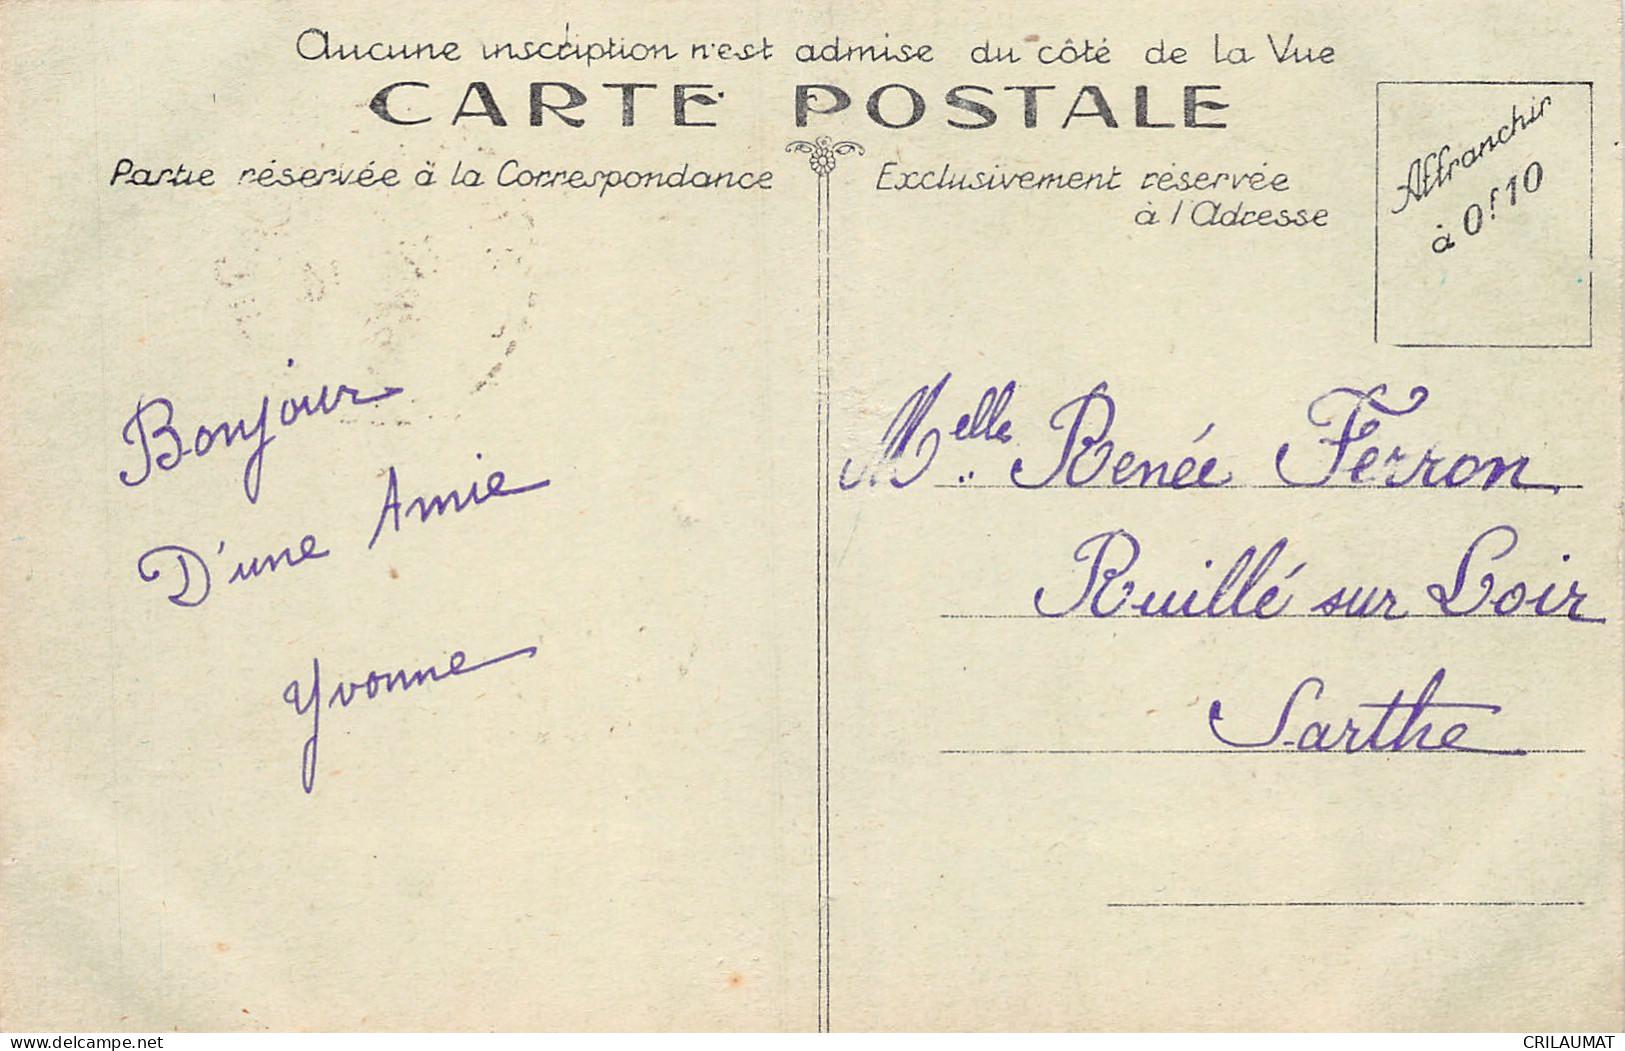 Aucune inscription n'est admise du côté de la Vue
CARTE POSTALE
Partie réservée à la Correspondance
Exclusivement réservée
à l'Adresse
Affranchir
à 0f10
Bonjour
D'une Amie
Yvonne
Melle. Renée Ferron
Ruillé sur Loir
Sarthe
www.delcampe.net
CRILAUMAT